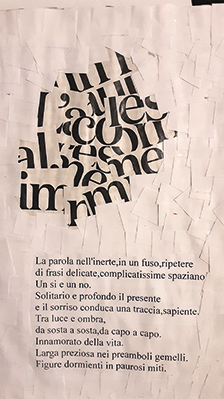 La parola nell'inerte,in un fuso,ripetere
di frasi delicate,complicatissime spaziano
Un si e un no.
Solitario e profondo il presente
e il sorriso conduca una traccia,sapiente.
Tra luce e ombra,
da sosta a sosta,da capo a capo.
Innamorato della vita.
Larga preziosa nei preamboli gemelli.
Figure dormienti in paurosi miti.